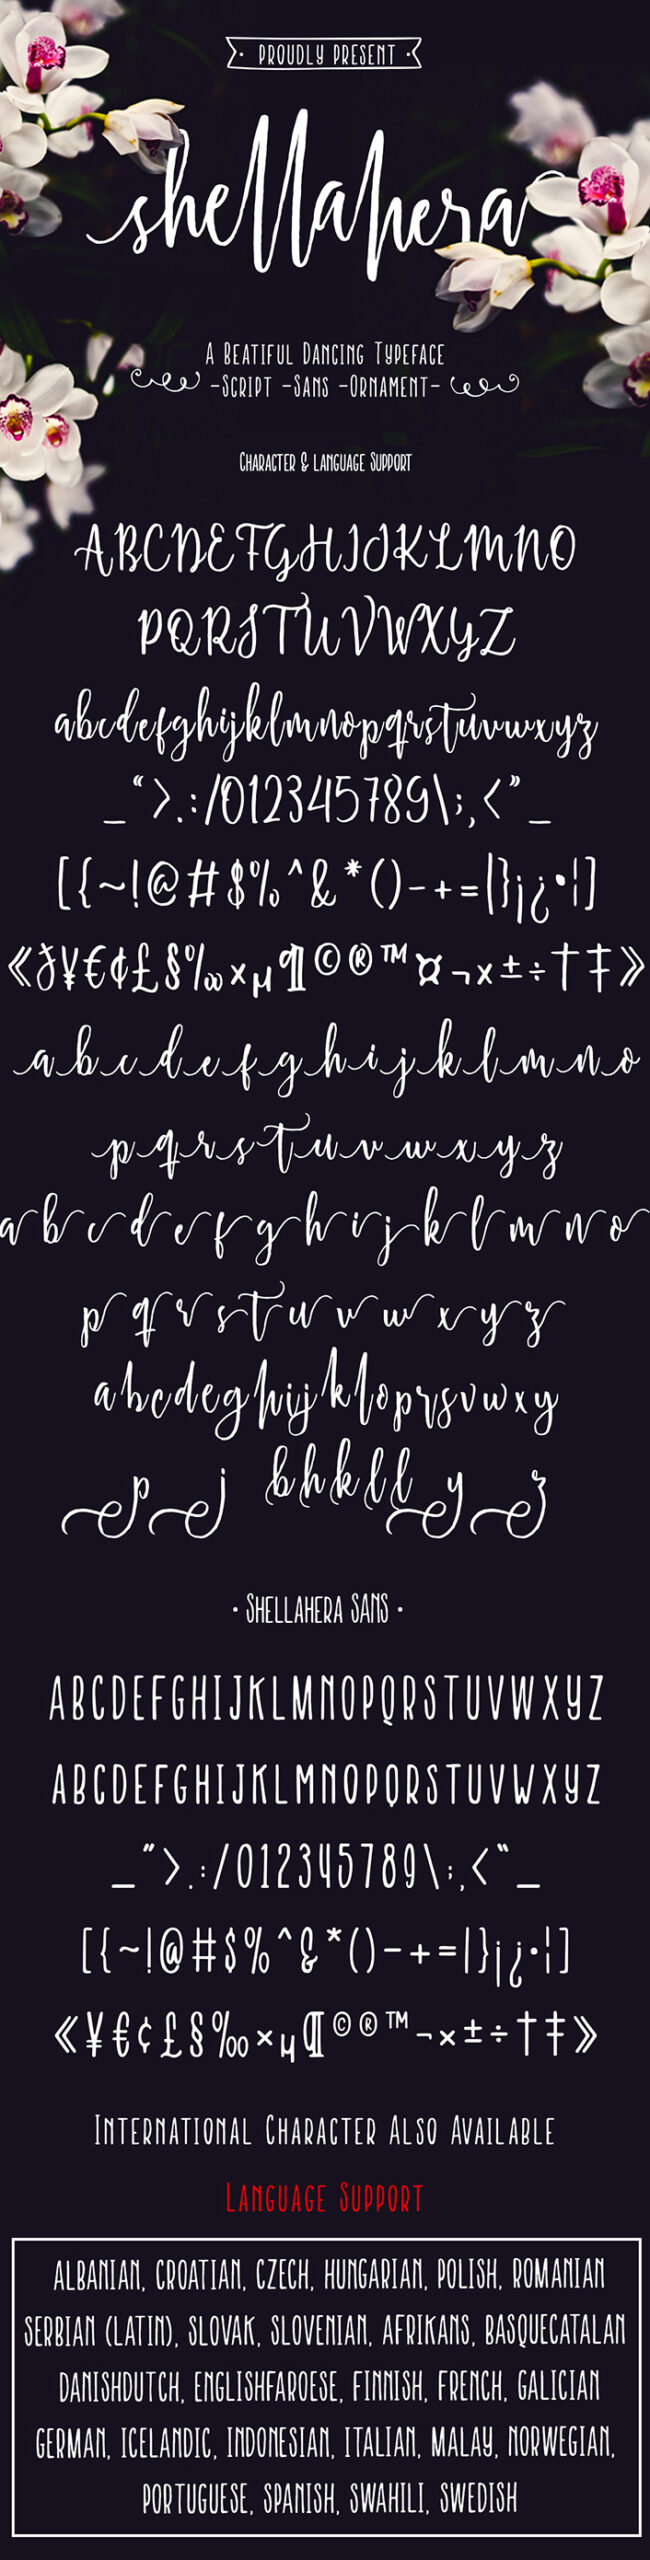 · PROUDLY PRESENT ·
shellahera
A BEATIFUL DANCING TYPEFACE
-SCRIPT -SANS -ORNAMENT-
CHARACTER & LANGUAGE SUPPORT
ABCDEFGHIJKLMNO
PQRSTUVWXYZ
abcdefghijklmnopqrstuvwxyz
_“>.:/012345789\;,<”_
[{~!@#$%^&*()-+=|}¡¿•¦]
«ƒ¥€¢£§‰×µ¶©®™¤¬×±÷†‡»
abcdefghijklmno
pqrstuvwxyz
abcdefghijklmno
pqrstuvwxyz
abcdeghijkloprsvwxy
p j bhkll y z
· SHELLAHERA SANS ·
ABCDEFGHIJKLMNOPQRSTUVWXYZ
ABCDEFGHIJKLMNOPQRSTUVWXYZ
_”>.:/012345789\;,<“_
[{~!@#$%^&*()-+=|}¡¿•¦]
«¥€¢£§‰×µ¶©®™¬×±÷†‡»
INTERNATIONAL CHARACTER ALSO AVAILABLE
LANGUAGE SUPPORT
ALBANIAN, CROATIAN, CZECH, HUNGARIAN, POLISH, ROMANIAN
SERBIAN (LATIN), SLOVAK, SLOVENIAN, AFRIKANS, BASQUECATALAN
DANISHDUTCH, ENGLISHFAROESE, FINNISH, FRENCH, GALICIAN
GERMAN, ICELANDIC, INDONESIAN, ITALIAN, MALAY, NORWEGIAN,
PORTUGUESE, SPANISH, SWAHILI, SWEDISH